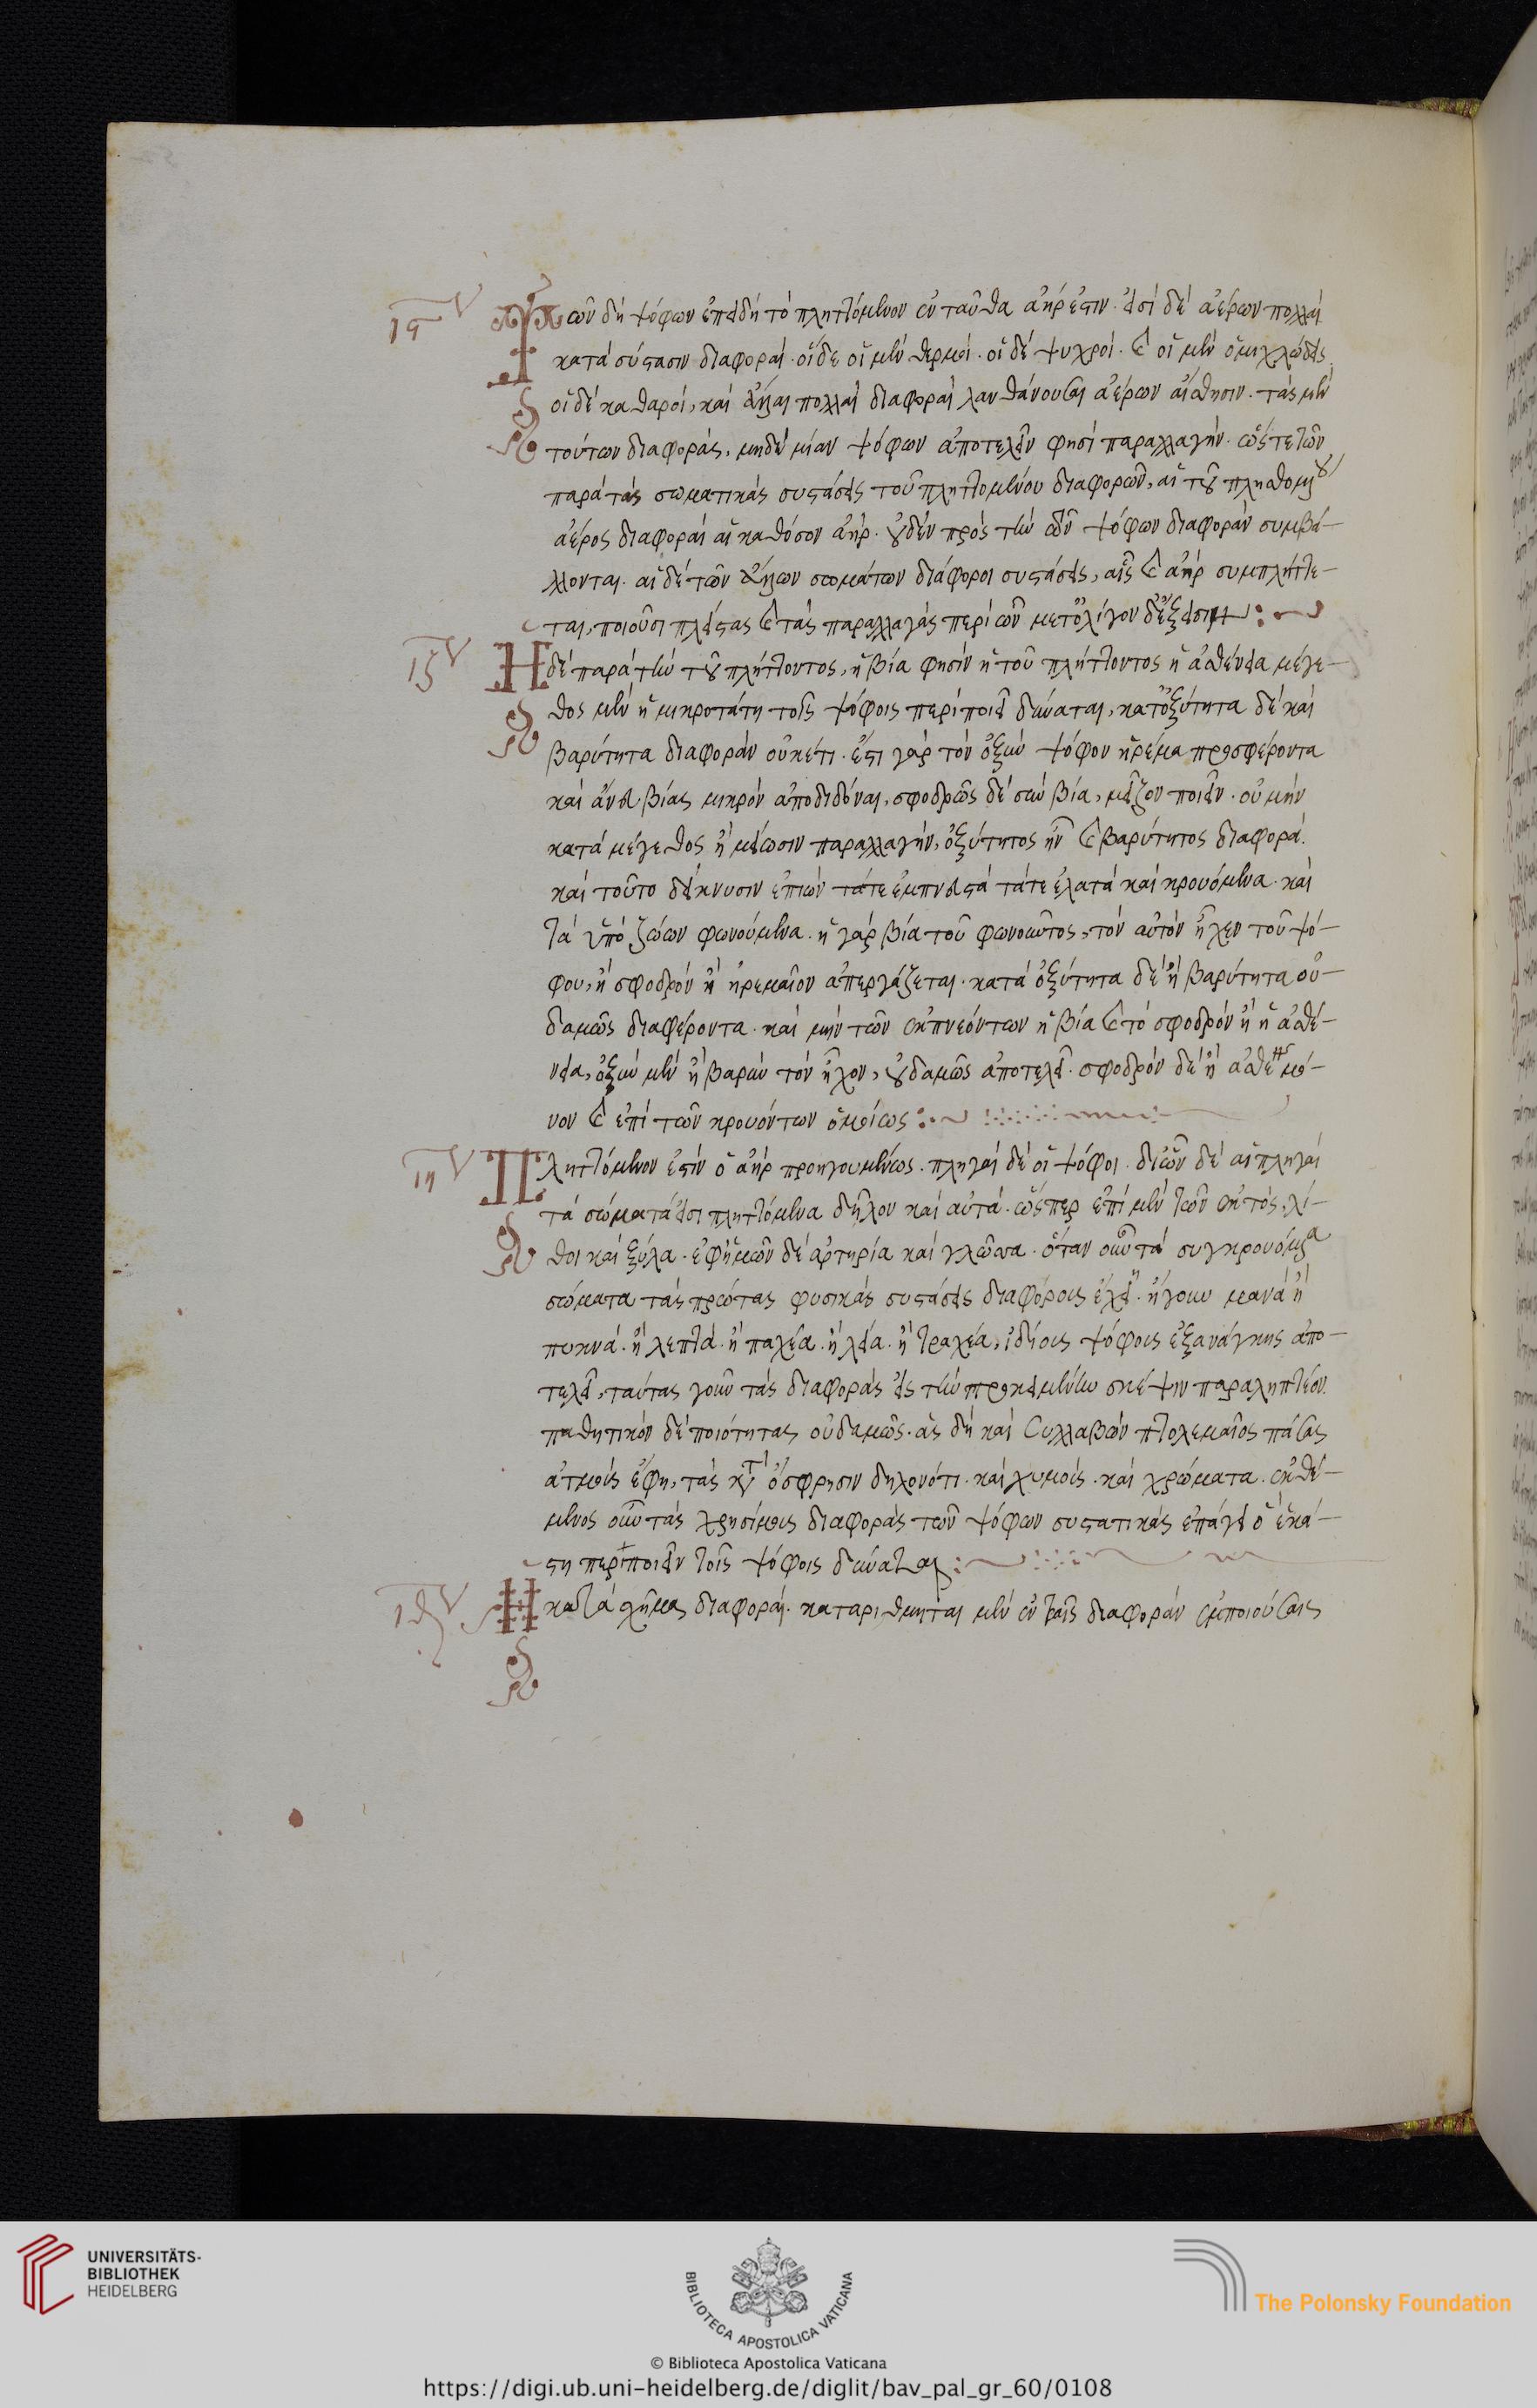 ιϛ Τῶν δὴ ψόφων ἐπειδὴ τὸ πληττόμενον ἐνταῦθα ἀήρ ἐστιν· εἰσὶ δὲ ἀέρων πολλαὶ
κατὰ σύστασιν διαφοραί· οἵδε οἱ μὲν θερμοὶ· οἱ δὲ ψυχροί· καὶ οἱ μὲν ὁμιχλώδεις
οἱ δὲ καθαροί, καὶ ἄλλαι πολλαὶ διαφοραὶ λανθάνουσαι ἀέρων αἴσθησιν· τὰς μὲν
τούτων διαφοράς, μηδὲ μίαν ψόφων ἀποτελεῖν φησὶ παραλλαγήν· ὥστε τῶν
παρὰ τὰς σωματικὰς συστάσεις τοῦ πληττομένου διαφορῶν, αἱ τοῦ πλησσομένου
ἀέρος διαφοραὶ αἱ καθόσον ἀήρ· οὐδὲν πρὸς τὴν τῶν ψόφων διαφορὰν συμβά-
λλονται· αἱ δὲ τῶν ἄλλων σωμάτων διάφοροι συστάσεις, αἷς καὶ ἀὴρ συμπλήττε-
ται, ποιοῦσι πλείστας καὶ τὰς παραλλαγὰς περὶ ὧν μετ' ὀλίγον διέξεισιν:
ιζ Ἡ δὲ παρὰ τὴν τοῦ πλήττοντος, ἡ βία φησὶν ἡ τοῦ πλήττοντος ἡ ἀσθένεια μέγε-
θος μὲν ἡ μικροτάτη τοῖς ψόφοις περιποιεῖ δύναται, κατ' ὀξύτητα δὲ καὶ
βαρύτητα διαφορὰν οὐκέτι· ἔστι γὰρ τὸν ὀξὺν ψόφον ἠρέμα προσφέροντα
καὶ ἄνευ βίας μικρὸν ἀποδιδόναι, σφοδρῶς δὲ σὺν βίᾳ, μεῖζον ποιεῖν· οὐ μὴν
κατὰ μέγεθος ἢ μείωσιν παραλλαγὴν, ὀξύτητος ἦν καὶ βαρύτητος διαφορά·
καὶ τοῦτο δείκνυσιν ἐπιὼν τά τε ἐμπνευστὰ τά τε ἐλατὰ καὶ κρουόμενα· καὶ
τὰ ὑπὸ ζώων φωνούμενα· ἡ γὰρ βία τοῦ φωνοῦντος, τὸν αὐτὸν ἦχεν τοῦ ψό-
φου, ἢ σφοδρὸν ἢ ἠρεμαῖον ἀπεργάζεται· κατὰ ὀξύτητα δὲ ἢ βαρύτητα οὐ-
δαμῶς διαφέροντα· καὶ μὴν τῶν ἐκπνεόντων ἡ βία καὶ τὸ σφοδρὸν ἢ ἡ ἀσθέ-
νεια, ὀξὺν μὲν ἢ βαρὺν τὸν ἦχον, οὐδαμῶς ἀποτελεῖ· σφοδρὸν δὲ ἢ ἀσθενῆ μό-
νον καὶ ἐπὶ τῶν κρουόντων ὁμοίως:
ιη Πληττόμενον ἐστὶν ὁ ἀὴρ προηγουμένως· πληγαὶ δὲ οἱ ψόφοι· δι' ὧν δὲ αἱ πληγαὶ
τὰ σώματά εἰσι πληττόμενα δῆλον καὶ αὐτά· ὥσπερ ἐπὶ μὲν τῶν ἐκτός, λί-
θοι καὶ ξύλα· ἐφ' ἡμῶν δὲ ἀρτηρία καὶ γλῶσσα· ὅταν οὖν τὰ συγκρουόμενα
σώματα τὰς πρώτας φυσικὰς συστάσεις διαφόρους ἔχει· ἤγουν μανὰ ἢ
πυκνά· ἢ λεπτά· ἢ παχέα· ἢ λεῖα· ἢ τραχέα, ἰδίοις ψόφοις ἐξανάγκης ἀπο-
τελεῖ, ταύτας γοῦν τὰς διαφορὰς εἰς τὴν προκειμένην σκέψιν παραληπτέον.
παθητικὸν δὲ ποιότητας οὐδαμῶς· ἃς δὴ καὶ συλλαβὼν πτολεμαῖος πάσας
ἀτμοὺς ἔφη, τὰς κατὰ ὄσφρησιν δηλονότι· καὶ χυμοὺς· καὶ χρώματα· ἐκθέ-
μενος οὖν τὰς χρησίμους διαφορὰς τῶν ψόφων συστατικὰς ἐπάγει ὃ ἑκά-
στη περιποιεῖν τοῖς ψόφοις δύναται:
ιθ Ἡ κατὰ σχῆμα διαφορά· καταριθμηται μὲν ἐν ταῖς διαφορὰν ἐμποιούσαις
UNIVERSITÄTS-
BIBLIOTHEK
HEIDELBERG
BIBLIOTECA APOSTOLICA VATICANA
The Polonsky Foundation
© Biblioteca Apostolica Vaticana
https://digi.ub.uni-heidelberg.de/diglit/bav_pal_gr_60/0108